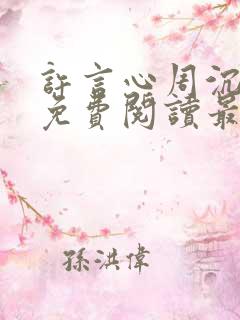 許言心周沉
免費閱讀最
孫洪偉